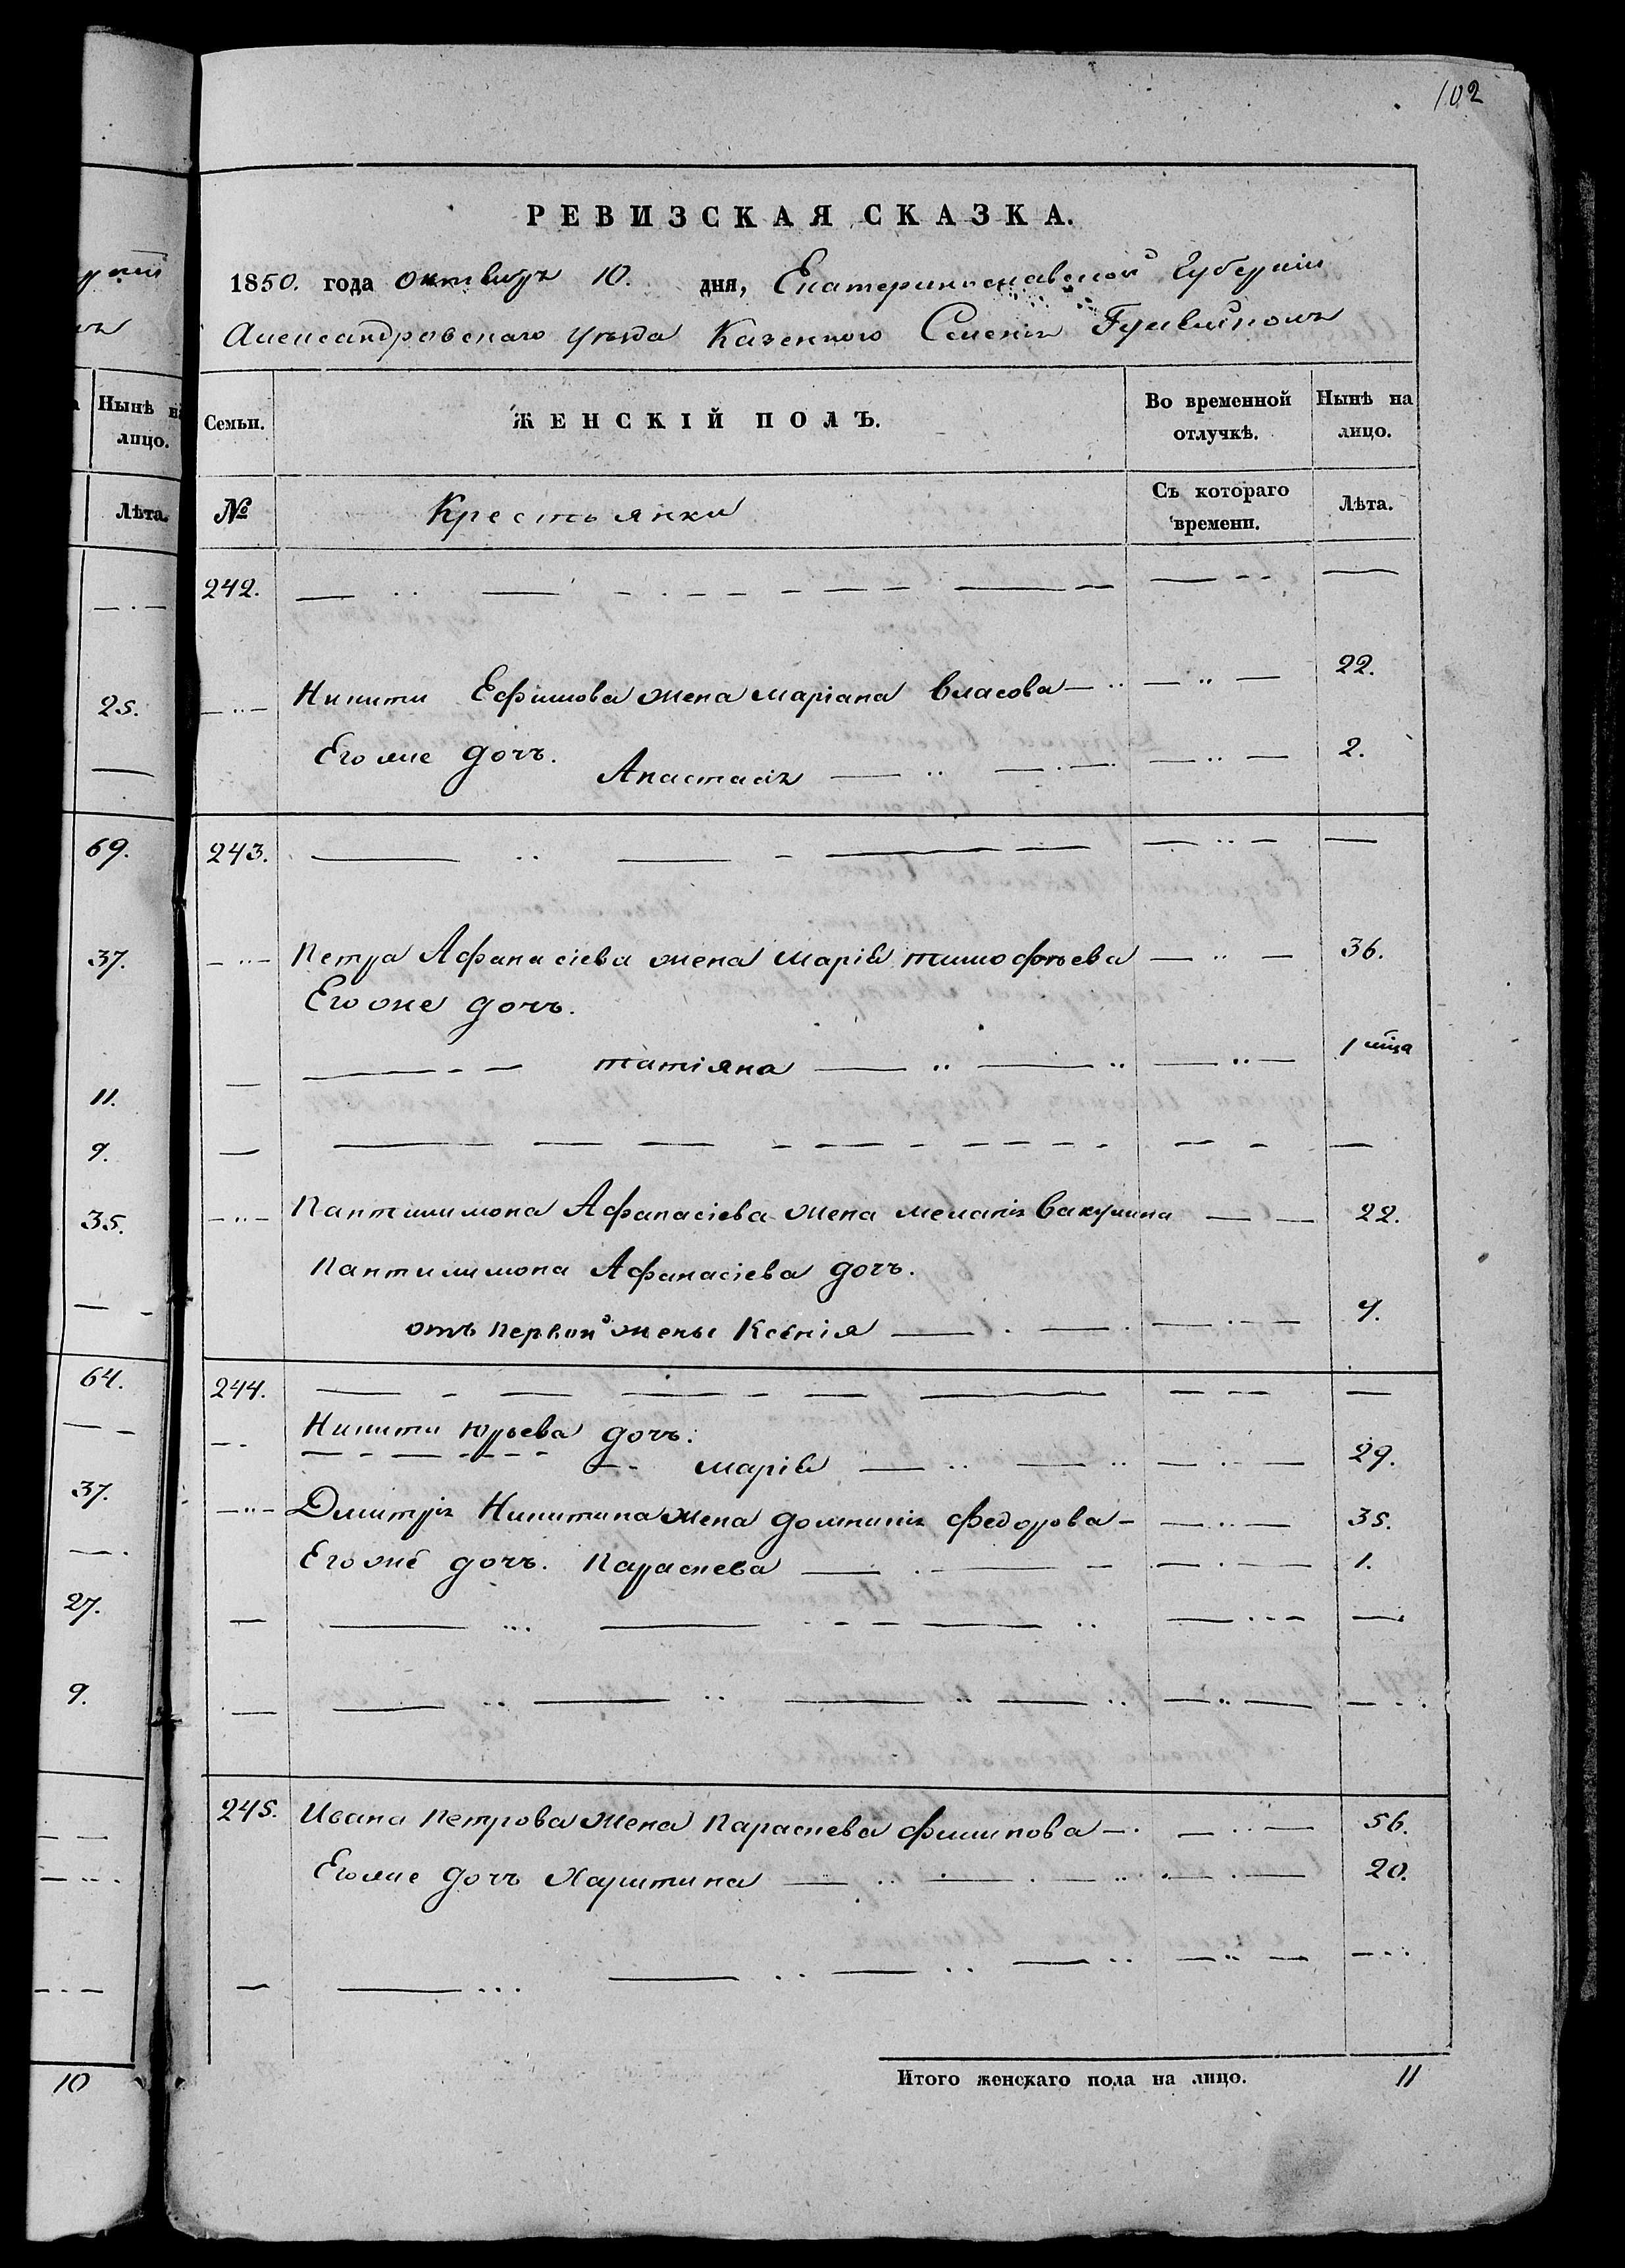 102
РЕВИЗСКАЯ СКАЗКА.
1850. года октября 10. дня, Екатеринославской Губернии
Александровскаго уѣзда Казеннаго Селенія Гуляйполя
утт
Нынѣ на лицо.
Лѣта.
25.
69.
37.
11.
9.
35.
64.
37.
27.
9.
10
Семьи. ЖЕНСКІЙ ПОЛЪ. Во временной отлучкѣ. Нынѣ на лицо.
№ Крестьянки Съ котораго времени. Лѣта.
242.
Никиты Ефимова жена Маріана Власова 22.
Его же дочь.
Анастасія 2.
243.
Петра Афанасіева жена Марія тимофѣева 36.
Его же дочь.
татіяна 1 мѣца
Пантилимона Афанасіева жена мелания Вакулина 22.
Пантилимона Афанасіева дочь.
отъ первой жены Ксѣнія 9.
244.
Никиты Юрьева дочь.
Марія 29.
Дмитрія Никитина жена домникія Федорова 35.
Его же дочь. Параскева 1.
245. Ивана Петрова Жена Параскева филипова 56.
Его же дочь Харитина 20.
Итого женскаго пола на лицо. 11